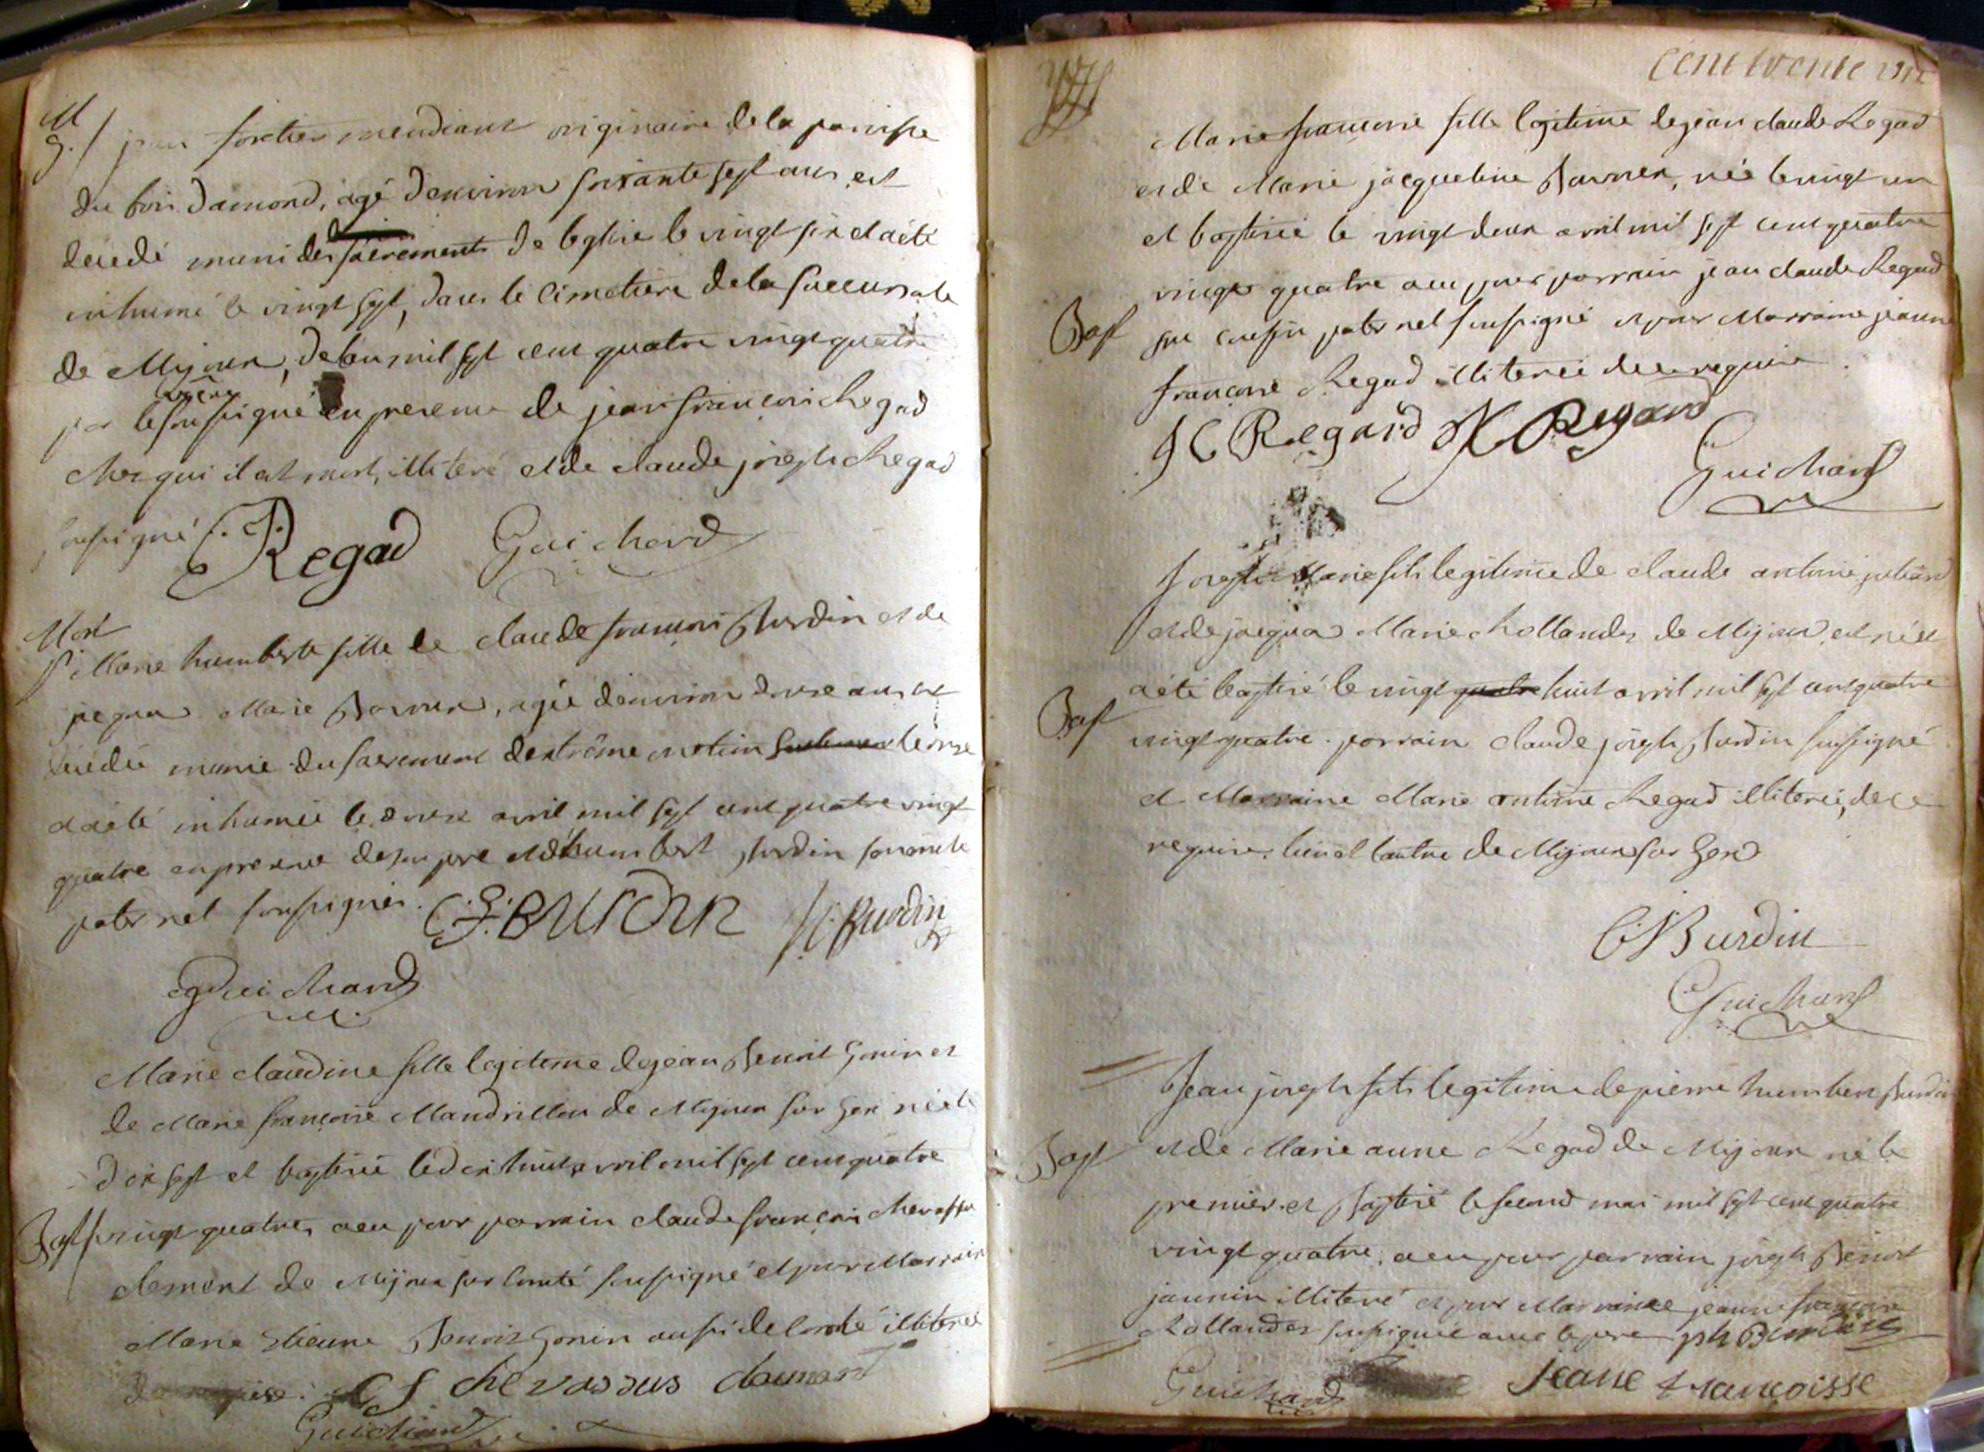 M
g. / jean forestier mendiant originaire de la paroisse
du bois damond, agé denviron soixante sept ans est
decedé muni des sacrements de leglise le vingt six et a été
inhumé le vingt sept, dans le cimetiere de la succursale
de Mijoux, de lan mil sept cent quatre vingt quatre
par le soussigné en presence de jean françois Regad
chez qui il est mort, illiteré et de claude joseph Regad
soussigné C. Regad Guichard
Mort
Marie humberte fille de claude françois Burdin et de
jacqua Marie Barnex, agée denviron douze ans est
decedée munie du sacrement dextrême onction le onze
a été inhumée le douze avril mil sept cent quatre vingt
quatre en presence de son pere et de humbert Burdin son oncle
paternel soussignés. C. F. Burdin Burdin
Guichard
Marie claudine fille legitime de jean Benoit Gonin et
de Marie françoise Mandrillon de Mijoux sur Gex née le
dix sept et baptisée le dix huit avril mil sept cent quatre
Bapt vingt quatre, a eu pour parrain claude françois chevassu
clement de Mijoux sur comté soussigné et pour Marraine
Marie Etienne Benoit Gonin aussi de comté illiterée
de requise. C f chevassus clement
Guichard
cent trente
Marie françoise fille legitime de jean claude Regad
et de Marie jacqueline Barnex, née le vingt un
et baptisée le vingt deux avril mil sept cent quatre
vingt quatre a eu pour parrain jean claude Regad
Bapt son cousin paternel soussigné et pour Marraine jeanne
françoise Regad illiterée de ce requise.
J C Regard J C Regard
Guichard
Joseph Marie fils legitime de claude antoine
et de jacqua Marie Rollandez de Mijoux, est né et
a été baptisé le vingt quatre huit avril mil sept cent quatre
Bapt vingt quatre. parrain claude joseph Burdin soussigné
et Marraine Marie antoine Regad illiterée, de ce
requise. lun et lautre de Mijoux sur Gex
C. Burdin
Guichard
Jean joseph fils legitime de pierre humbert Burdin
Bapt et de Marie anne Regad de Mijoux né le
premier et Baptisé le second mai mil sept cent quatre
vingt quatre. a eu pour parrain joseph Benoit
jaunin illiteré et pour Marraine jeanne françoise
Rollandez soussignée avec le pere ph Burdin
Guichard Jeane francoisse